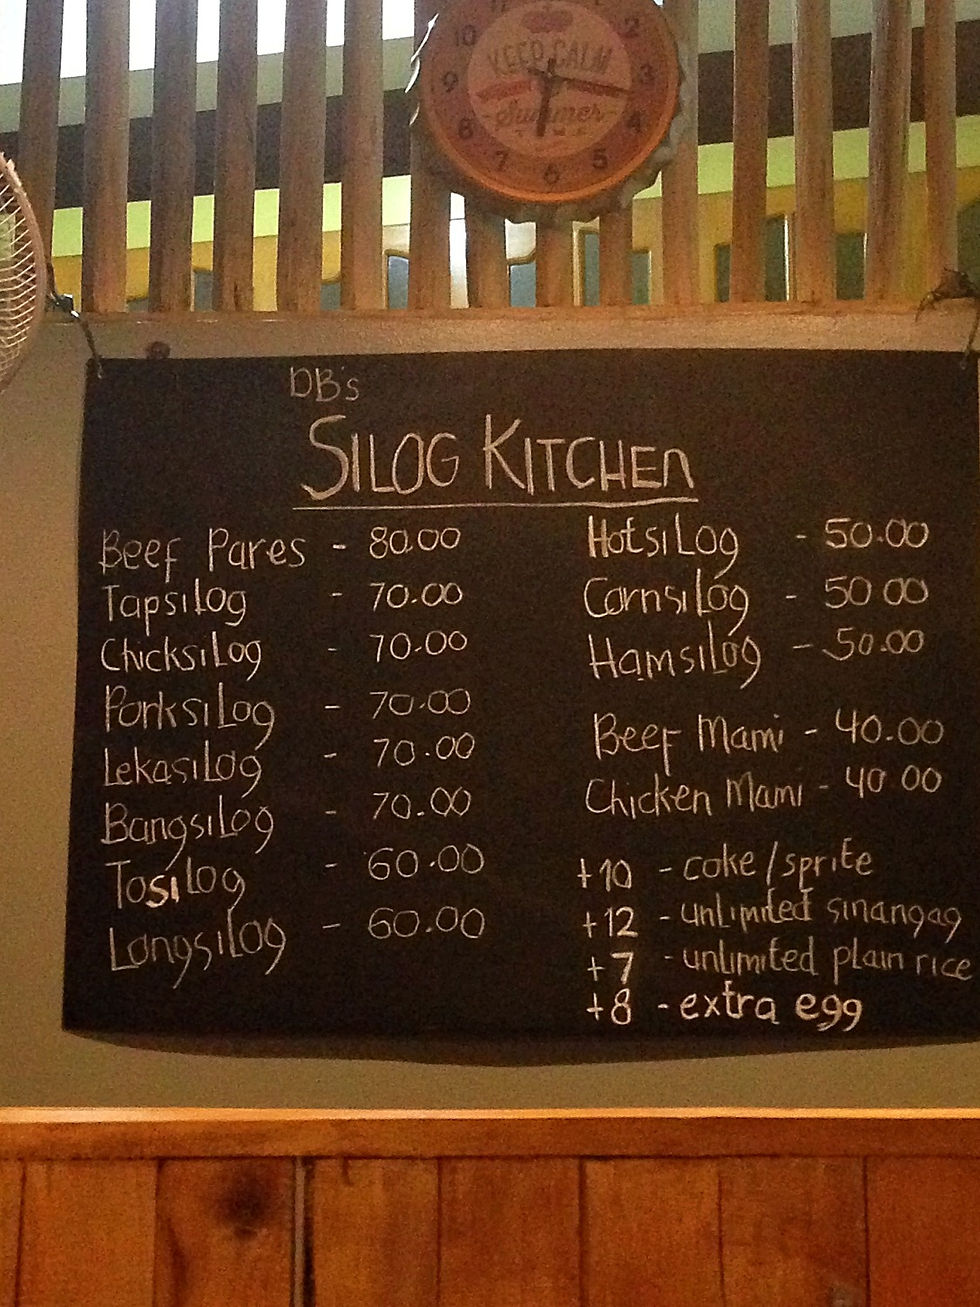 10
2
9
3
8
4
7
5
6
KEEP CALM
Summer
DB's
SILOG KITCHEN
Beef Pares - 80.00
Tapsilog - 70.00
Chicksilog - 70.00
Porksilog - 70.00
Lekasilog - 70.00
Bangsilog - 70.00
Tosilog - 60.00
Longsilog - 60.00
Hotsilog - 50.00
Cornsilog - 50 00
Hamsilog - 50.00
Beef Mami - 40.00
Chicken Mami - 40.00
+10 - coke/sprite
+12 - unlimited sinangag
+7 - unlimited plain rice
+8 - extra egg